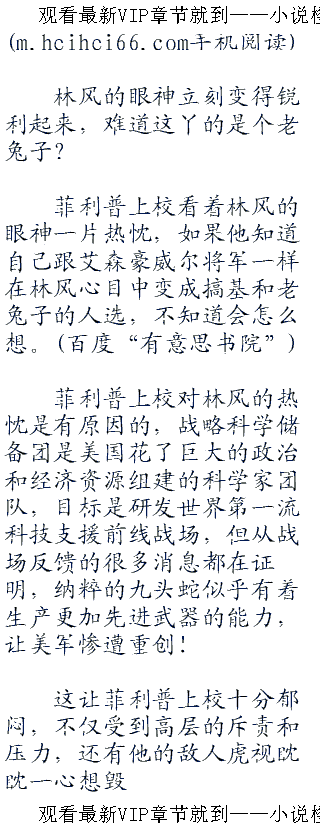 观看最新VIP章节就到——小说检
(m.hcihci66.com手机阅读)
林风的眼神立刻变得锐
利起来，难道这丫的是个老
兔子？
菲利普上校看着林风的
眼神一片热忱，如果他知道
自己跟艾森豪威尔将军一样
在林风心目中变成搞基和老
兔子的人选，不知道会怎么
想。(百度“有意思书院”)
菲利普上校对林风的热
忱是有原因的，战略科学储
备团是美国花了巨大的政治
和经济资源组建的科学家团
队，目标是研发世界第一流
科技支援前线战场，但从战
场反馈的很多消息都在证
明，纳粹的九头蛇似乎有着
生产更加先进武器的能力，
让美军惨遭重创！
这让菲利普上校十分郁
闷，不仅受到高层的斥责和
压力，还有他的敌人虎视眈
眈一心想毁
观看最新VIP章节就到——小说检